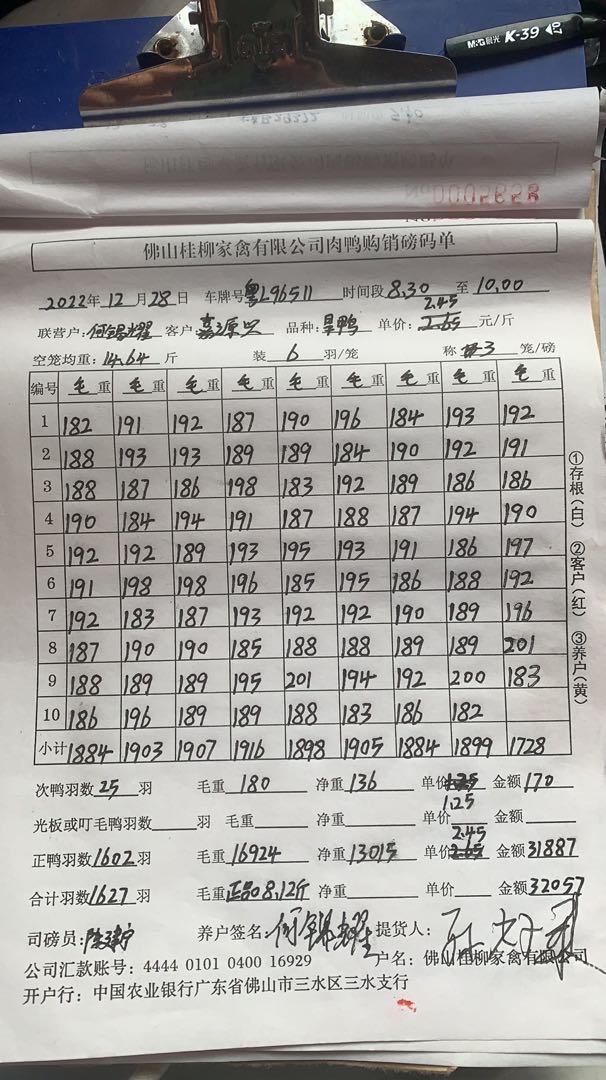 M&G 晨光 K-39
No 0005658
佛山桂柳家禽有限公司肉鸭购销磅码单
2022年 12 月 28 日 车牌号 粤L96511 时间段 8.30 至 10.00
2.45
联营户: 何锦耀 客户: 品种: 单价: 2.65 元/斤
空笼均重: 14.64 斤 装 6 羽/笼 称 3 笼/磅
编号 毛重 毛重 毛重 毛重 毛重 毛重 毛重 毛重 毛重
1 182 191 192 187 190 196 184 193 192
2 188 193 193 189 189 184 190 192 191
3 188 187 186 198 183 192 189 186 186
4 190 184 194 191 187 188 187 194 190
5 192 192 189 193 195 193 191 186 197
6 191 198 198 196 185 195 186 188 192
7 192 183 187 193 192 192 190 189 196
8 187 190 190 185 188 188 189 189 201
9 188 189 189 195 201 194 192 200 183
10 186 196 189 189 188 183 186 182
小计 1884 1903 1907 1916 1898 1905 1884 1899 1728
①存根(白) ②客户(红) ③养户(黄)
次鸭羽数 25 羽 毛重 180 净重 136 单价 1.25 金额 170
光板或叮毛鸭羽数 羽 毛重 净重 单价 金额
2.45
正鸭羽数 1602 羽 毛重 16924 净重 13015 单价 2.65 金额 31887
合计羽数 1627 羽 毛重 正品08,12斤 净重 单价 金额 32057
司磅员: 养户签名: 何锦耀 提货人:
公司汇款账号: 4444 0101 0400 16929 户名: 佛山桂柳家禽有限公司
开户行: 中国农业银行广东省佛山市三水区三水支行